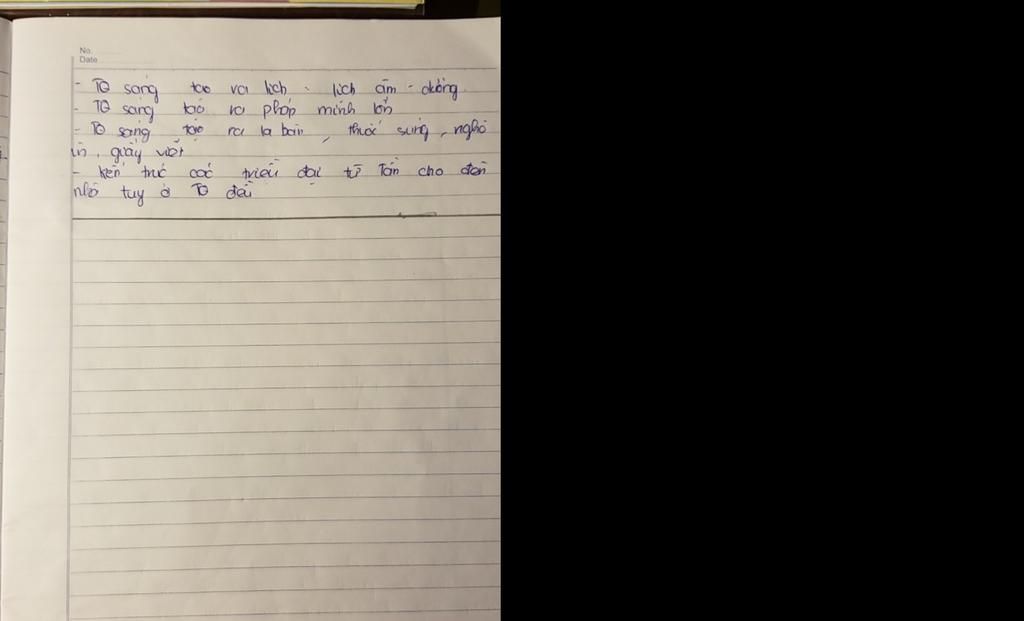 No.
Date
- TQ sáng tạo ra lịch : lịch âm - dương
- TQ sáng tạo ra pháp minh lớn
- TQ sáng tạo ra la bàn, thuốc súng, nghề
in, giấy viết
- kiến trúc các triều đại từ Tần cho đến
nhà tuỳ ở TQ